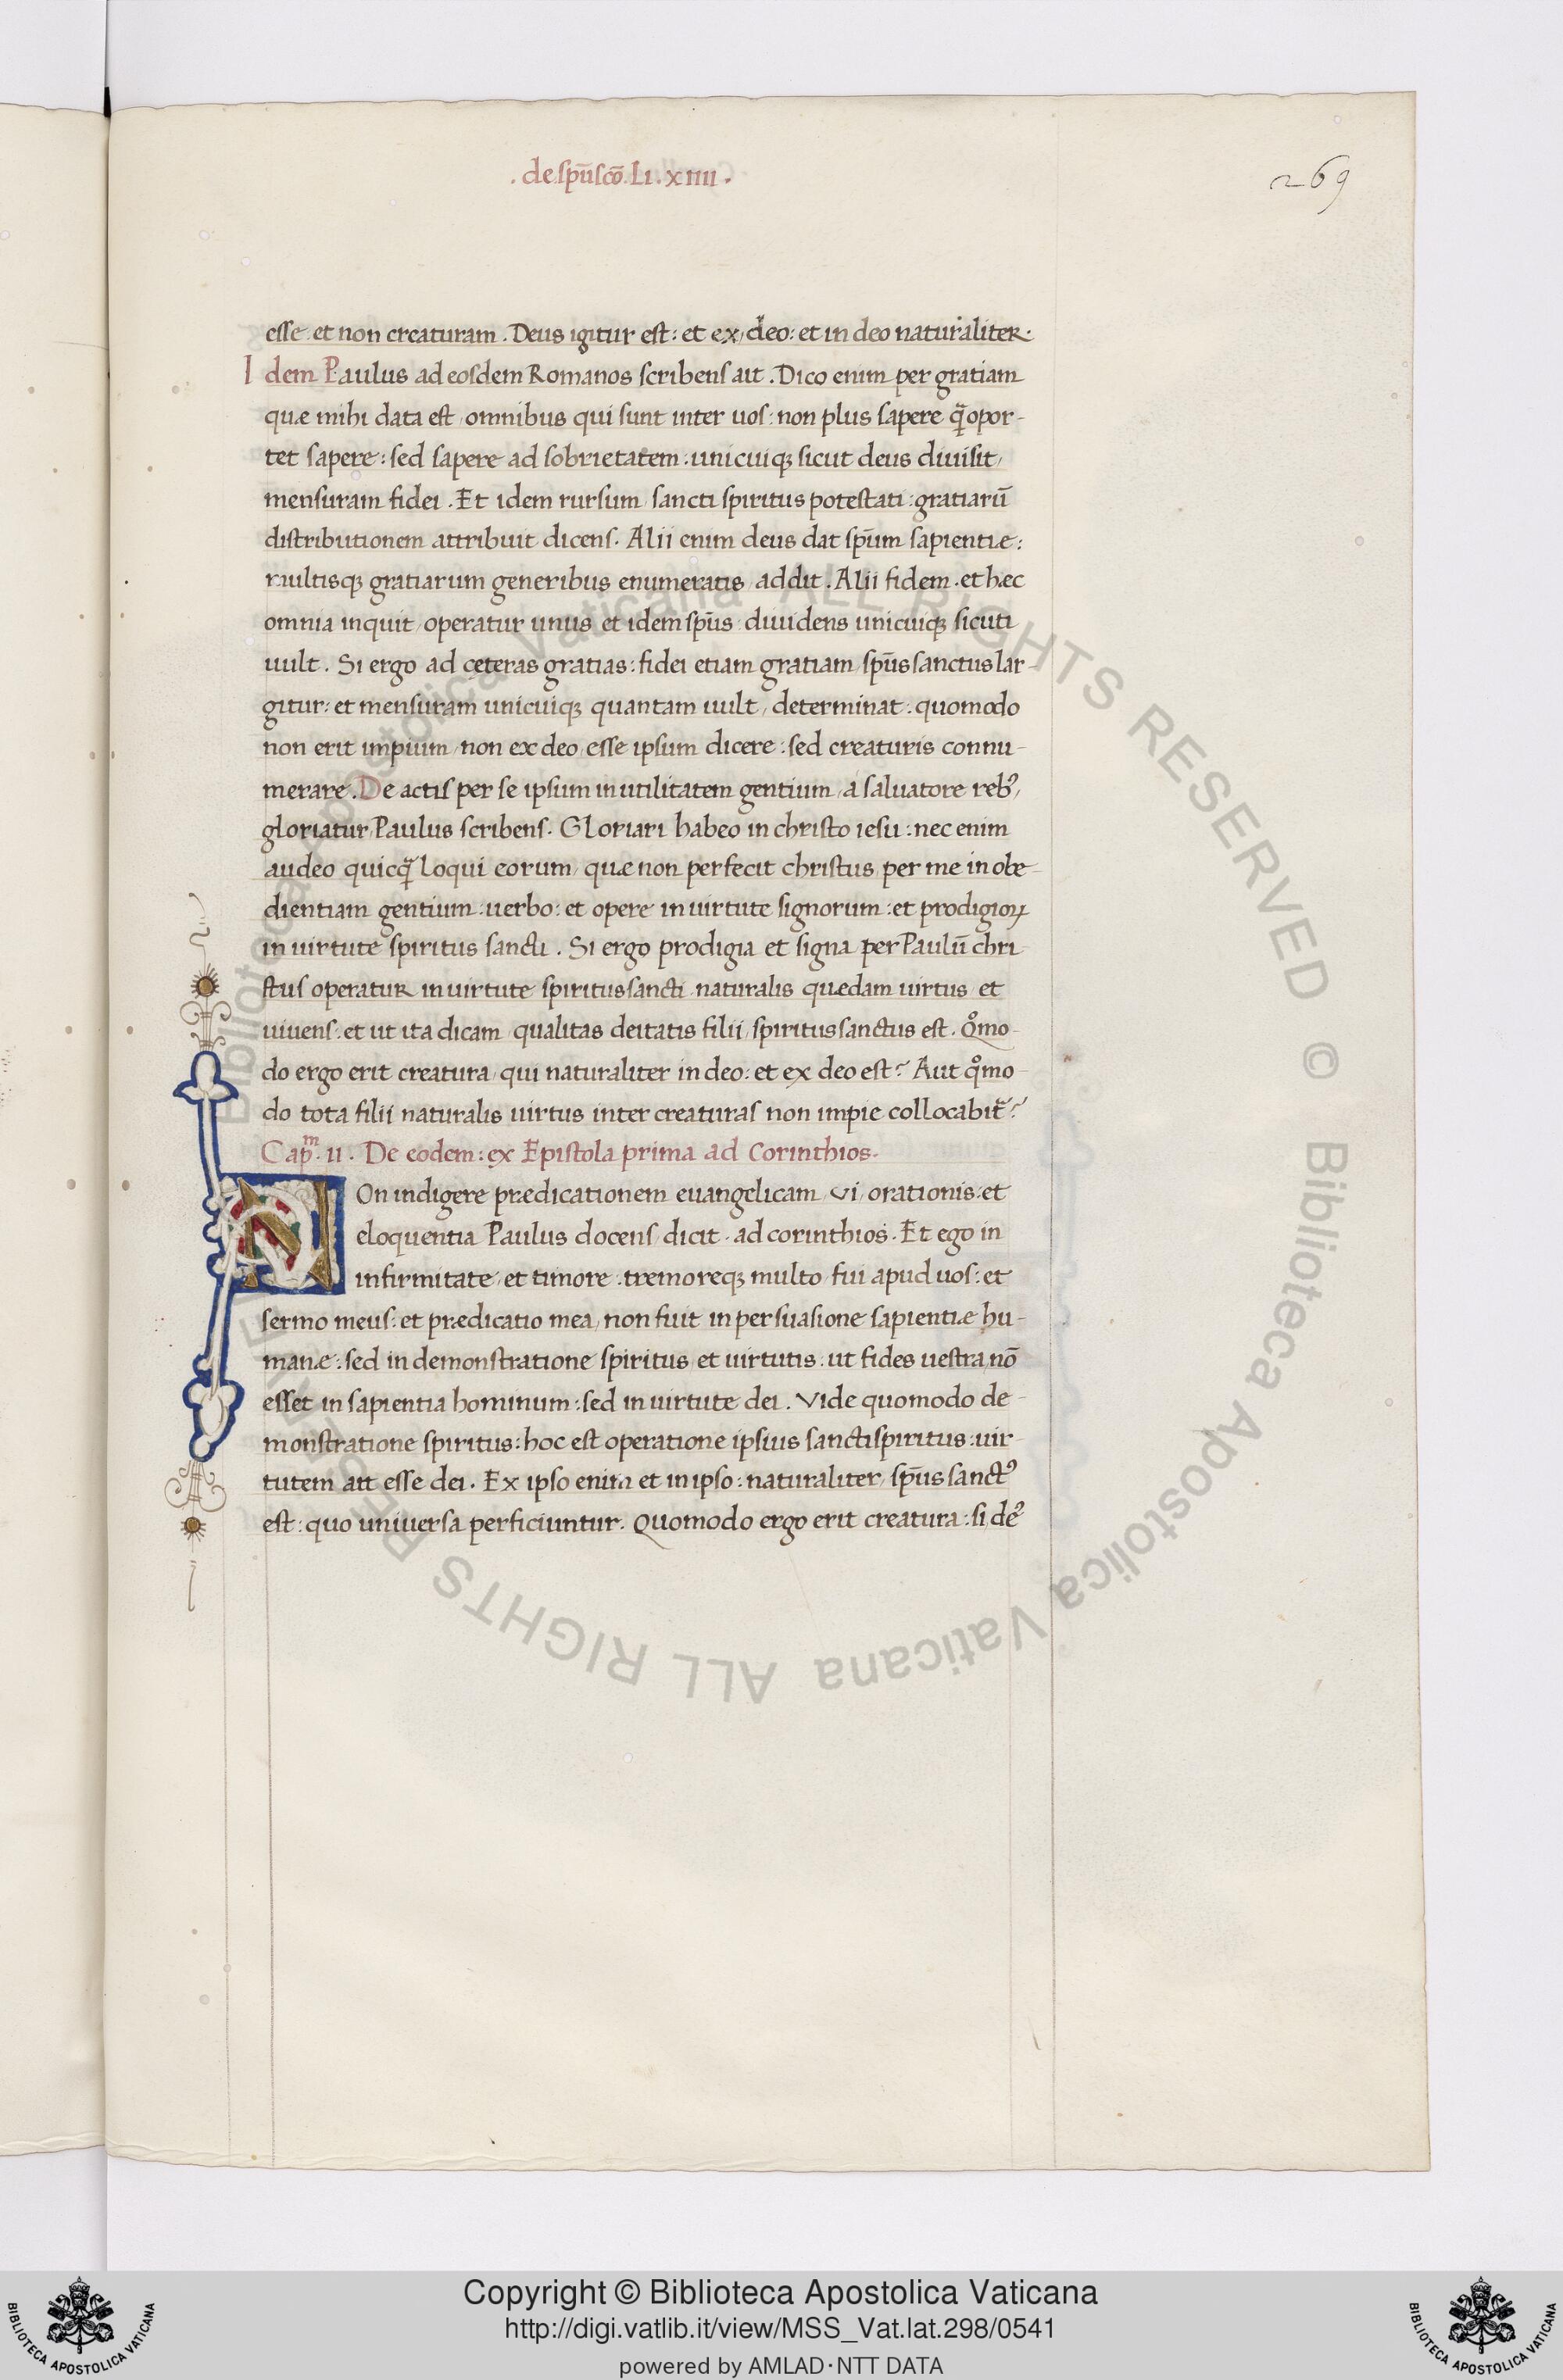 . de spūscō. Li. xiiii.
269
esse et non creaturam. Deus igitur est: et ex deo: et in deo naturaliter.
Idem Paulus ad eosdem Romanos scribens ait. Dico enim per gratiam
quæ mihi data est omnibus qui sunt inter uos: non plus sapere q̄ opor-
tet sapere: sed sapere ad sobrietatem: unicuiqȝ sicut deus diuisit,
mensuram fidei. Et idem rursum sancti spiritus potestati: gratiarū
distributionem attribuit dicens. Alii enim deus dat sp̄um sapientiæ:
multisqȝ gratiarum generibus enumeratis addit. Alii fidem. et hæc
omnia inquit operatur unus et idem sp̄us diuidens unicuiqȝ sicuti
uult. Si ergo ad ceteras gratias: fidei etiam gratiam sp̄us sanctus lar-
gitur: et mensuram unicuiqȝ quantam uult, determinat: quomodo
non erit impium non ex deo esse ipsum dicere: sed creaturis connu-
merare. De actis per se ipsum in utilitatem gentium a saluatore rebꝰ,
gloriatur Paulus scribens. Gloriari habeo in christo iesu: nec enim
audeo quicq̄ loqui eorum, quæ non perfecit christus per me in obe-
dientiam gentium: uerbo: et opere in uirtute signorum: et prodigioꝝ
in uirtute spiritus sancti. Si ergo prodigia et signa per Paulū chri-
stus operatur in uirtute spiritus sancti naturalis quædam uirtus et
uiuens: et ut ita dicam qualitas deitatis filii, spiritus sanctus est. Qͦmo-
do ergo erit creatura, qui naturaliter in deo: et ex deo est? Aut qͦmo-
do tota filii naturalis uirtus inter creaturas non impie collocabit̄?
Cap.ᵐ ii. De eodem: ex Epistola prima ad Corinthios.
NOn indigere prædicationem euangelicam, vi, orationis: et
eloquentia Paulus docens, dicit. ad corinthios. Et ego in
infirmitate, et timore. tremoreqȝ multo fui apud uos: et
sermo meus: et prædicatio mea, non fuit in persuasione sapientiæ hu-
manæ: sed in demonstratione spiritus et uirtutis: ut fides uestra nō
esset in sapientia hominum: sed in uirtute dei. Vide quomodo de-
monstratione spiritus: hoc est operatione ipsius sancti spiritus: uir-
tutem ait esse dei. Ex ipso enim et in ipso: naturaliter, sp̄us sanctꝰ
est: quo uniuersa perficiuntur. Quomodo ergo erit creatura: si deꝰ
Biblioteca Apostolica Vaticana ALL RIGHTS RESERVED © Biblioteca Apostolica Vaticana ALL RIGHTS RESERVED
Copyright © Biblioteca Apostolica Vaticana
http://digi.vatlib.it/view/MSS_Vat.lat.298/0541
powered by AMLAD·NTT DATA
BIBLIOTECA APOSTOLICA VATICANA
BIBLIOTECA APOSTOLICA VATICANA